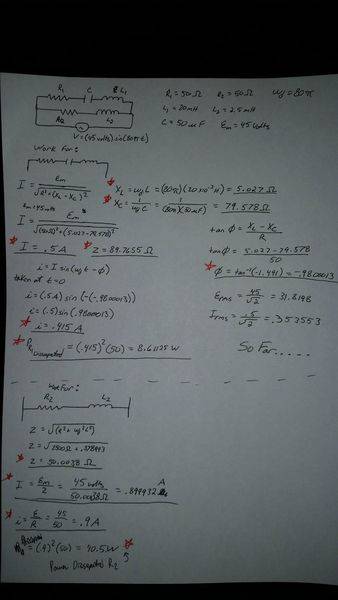 R₁ C L₁
R₂ L₂
V = (45 volts) sin(80πt)
R₁ = 50Ω R₂ = 50Ω ω = 80π
L₁ = 20mH L₂ = 2.5mH
C = 50μF Em = 45 volts
Work For:
I = Em / √(R² + (XL - XC)²)
Em = 45 volts
I = Em / √((50Ω)² + (5.027 - 79.578)²)
I = .5A Z = 89.7655Ω
i = I sin(ωt - ϕ)
taken at t = 0
i = (.5A) sin(-(-.9800013)
i = (.5) sin(.9800013)
i = .415A
P R₁ Dissipated = (.415)²(50) = 8.61125W
XL = ωL = (80π)(20×10⁻³H) = 5.027Ω
XC = 1/ωC = 1/(80π)(50μF) = 79.578Ω
tan ϕ = XL - XC / R
tan ϕ = 5.027 - 79.578 / 50
ϕ = tan⁻¹(-1.491) = -.9800013
Erms = 45/√2 = 31.8198
Irms = .5/√2 = .353553
So Far.....
Work For:
R₂ L₂
Z = √(R² + ω²L²)
Z = √2500Ω + .378993
Z = 50.0038Ω
I = Em/Z = 45 volts / 50.0038Ω = .899932 A
i = E/R = 45/50 = .9A
= (.9)²(50) = 40.5W
Power Dissipated R₂